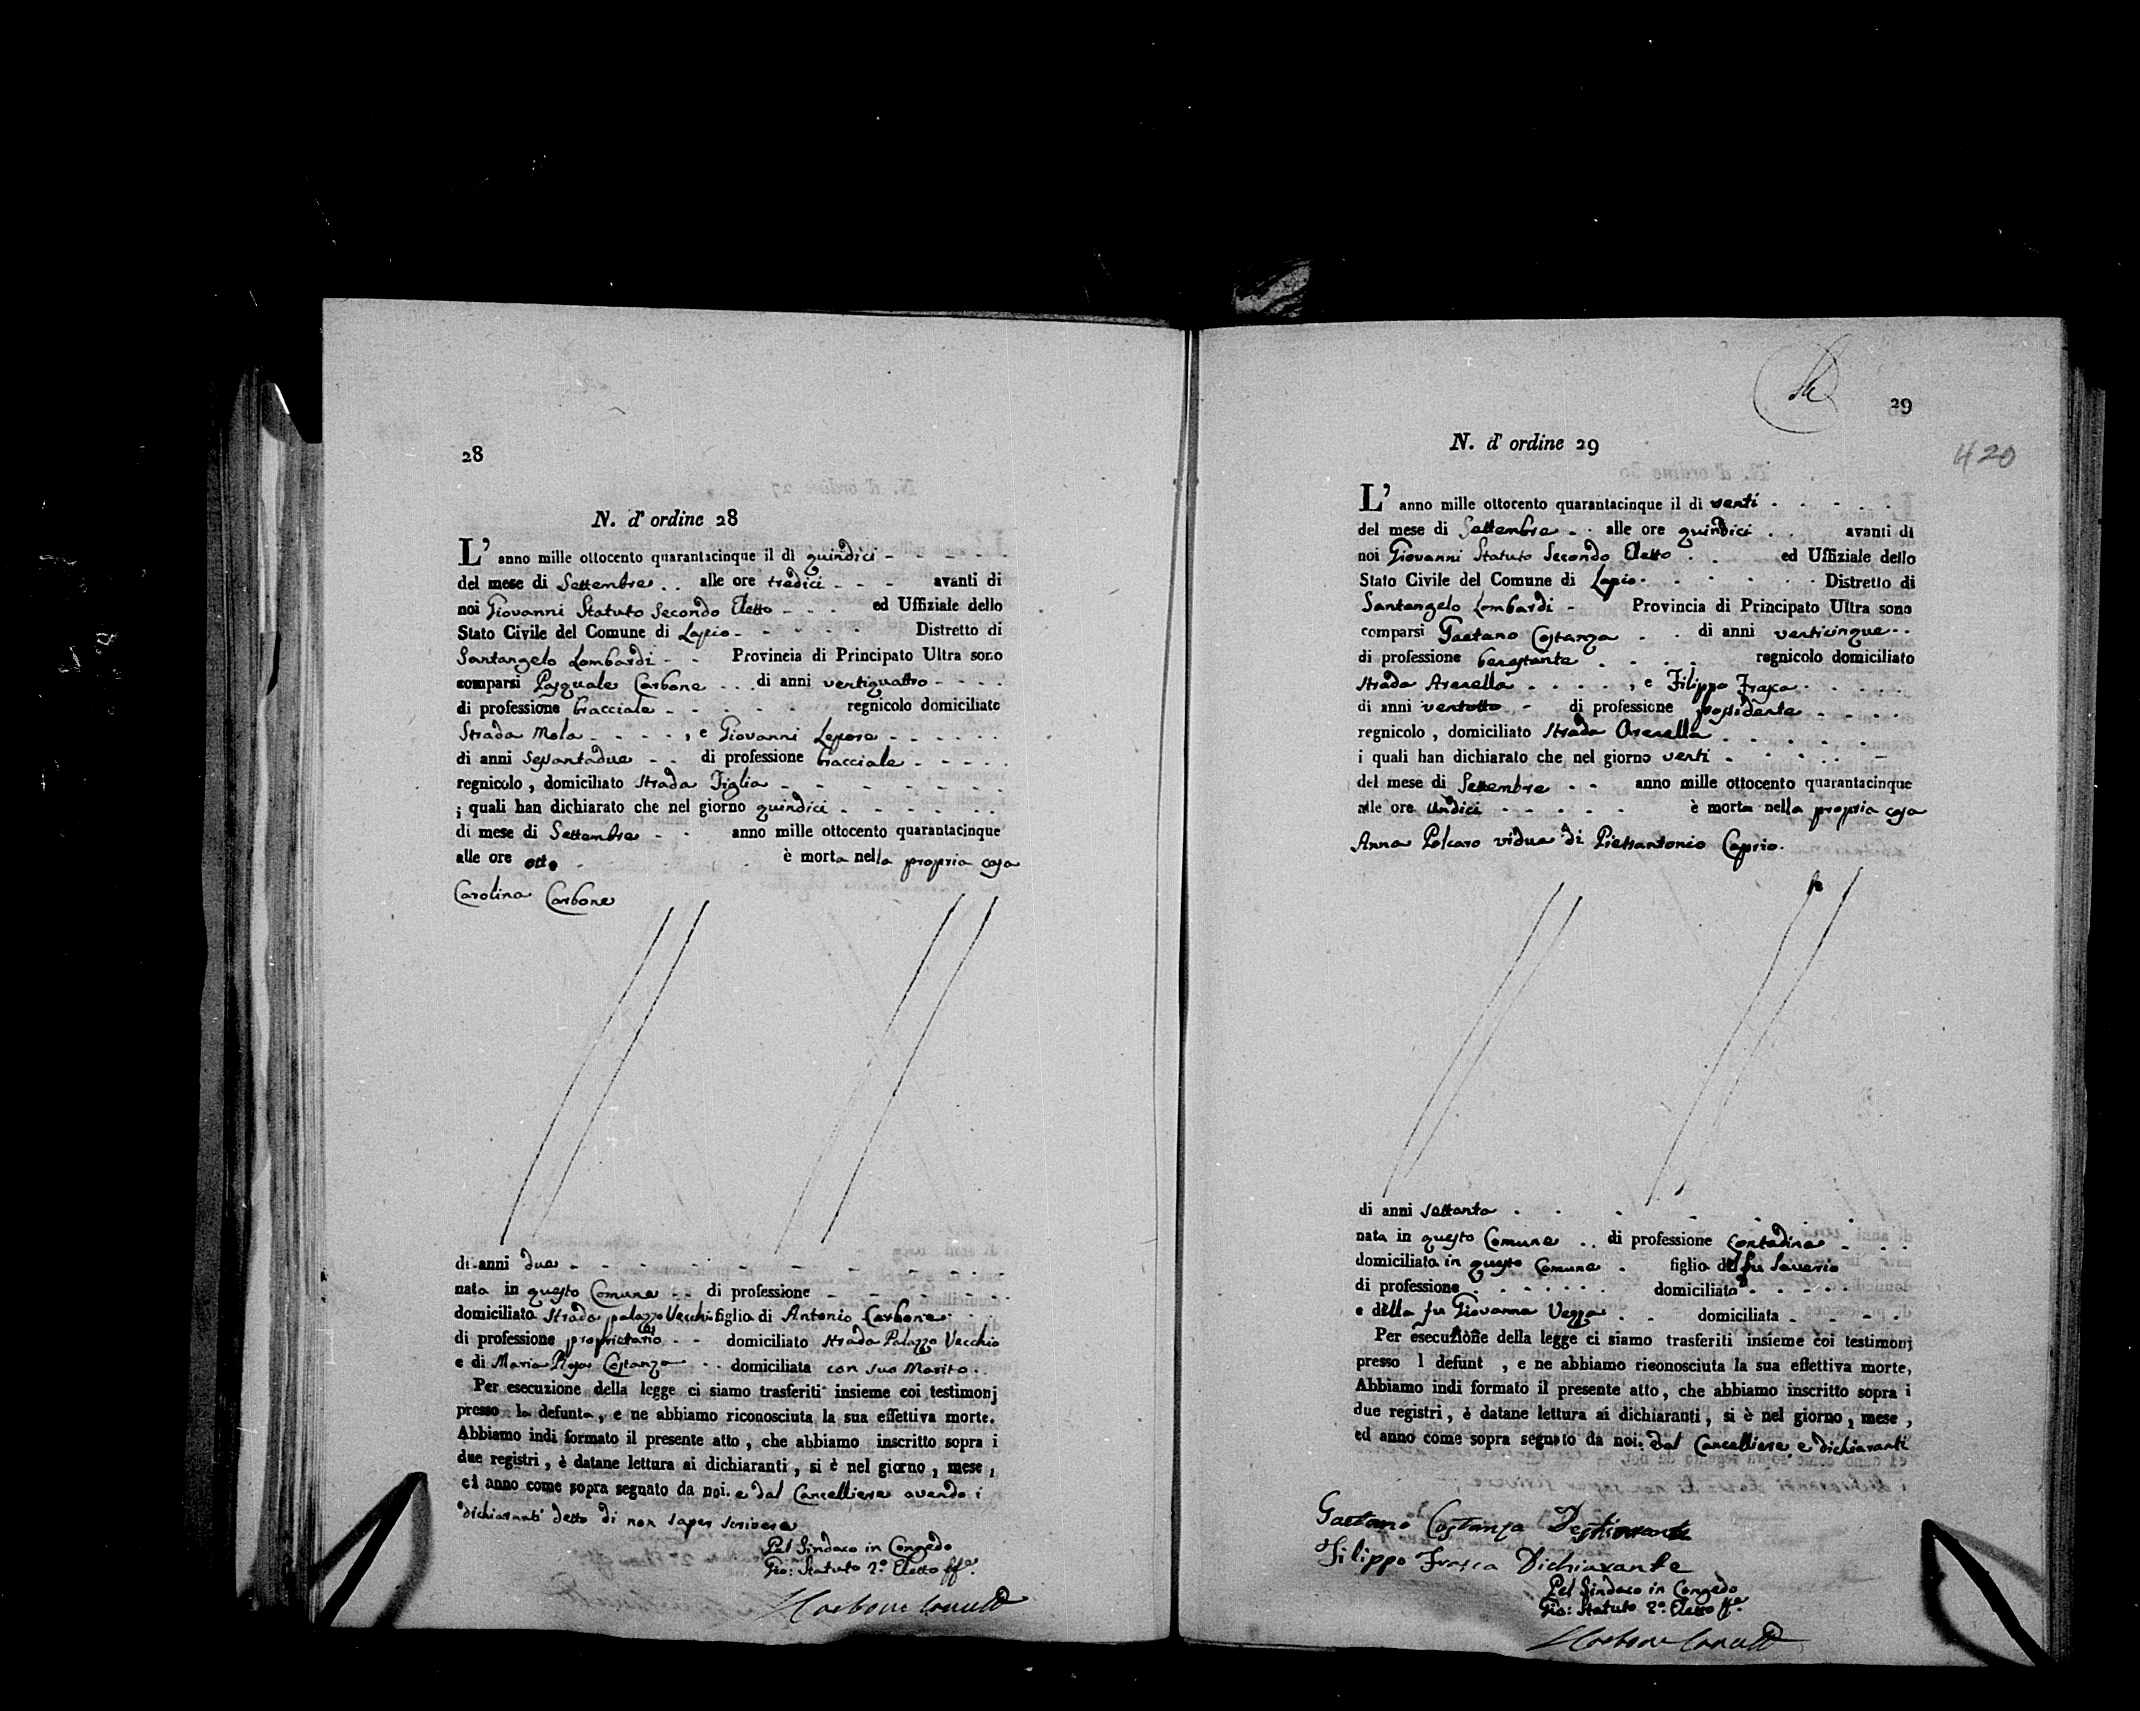 28
N. d' ordine 28
L' anno mille ottocento quarantacinque il dì quindici
del mese di Settembre alle ore tredici avanti di
noi Giovanni Statuto Secondo Eletto ed Uffiziale dello
Stato Civile del Comune di Lapio Distretto di
Santangelo Lombardi Provincia di Principato Ultra sono
comparsi Pasquale Carbone di anni ventiquattro
di professione bracciale regnicolo domiciliato
Strada Mola , e Giovanni Lepore
di anni Sessantadue di professione bracciale
regnicolo , domiciliato Strada Figlia
i quali han dichiarato che nel giorno quindici
di mese di Settembre anno mille ottocento quarantacinque
alle ore otto è morta nella propria casa
Carolina Carbone
di anni due
nata in questo Comune di professione
domiciliata Strada palazzo Vecchio figlia di Antonio Carbone
di professione proprietario domiciliato Strada Palazzo Vecchio
e di Maria Rosa Costanza domiciliata con suo Marito
Per esecuzione della legge ci siamo trasferiti insieme coi testimonj
presso la defunta , e ne abbiamo riconosciuta la sua effettiva morte.
Abbiamo indi formato il presente atto , che abbiamo inscritto sopra i
due registri , è datane lettura ai dichiaranti , si è nel giorno , mese ,
ed anno come sopra segnato da noi. e dal Cancelliere avendo i
dichiaranti detto di non saper scrivere
Pel Sindaco in Congedo
Gio: Statuto 2.º Eletto ff.º
29
N. d' ordine 29
420
L' anno mille ottocento quarantacinque il dì venti
del mese di Settembre alle ore quindici avanti di
noi Giovanni Statuto Secondo Eletto ed Uffiziale dello
Stato Civile del Comune di Lapio Distretto di
Santangelo Lombardi Provincia di Principato Ultra sono
comparsi Gaetano Costanza di anni venticinque
di professione benestante regnicolo domiciliato
Strada Arenella , e Filippo Frasca
di anni ventotto di professione possidente
regnicolo , domiciliato Strada Arenella
i quali han dichiarato che nel giorno venti
del mese di Settembre anno mille ottocento quarantacinque
alle ore undici è morta nella propria casa
Anna Polcaro vidua di Pietrantonio Caprio.
di anni settanta
nata in questo Comune di professione contadina
domiciliata in questo Comune figlia del fu Saverio
di professione domiciliato
e della fu Giovanna Vezza domiciliata
Per esecuzione della legge ci siamo trasferiti insieme coi testimonj
presso l defunt , e ne abbiamo riconosciuta la sua effettiva morte,
Abbiamo indi formato il presente atto , che abbiamo inscritto sopra i
due registri , è datane lettura ai dichiaranti , si è nel giorno , mese ,
ed anno come sopra segnato da noi. dal Cancelliere e dichiaranti
Gaetano Costanza
Filippo Frasca Dichiarante
Pel Sindaco in Congedo
Gio: Statuto 2.º Eletto ff.º